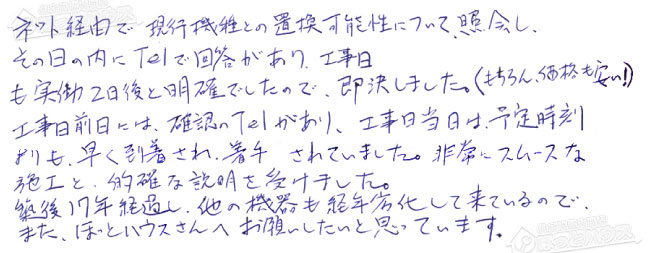 ネット経由で現行機種との置換可能性について、照会し、
その日の内にTelで回答があり、工事日
も実働2日後と明確でしたので、即決しました。(もちろん、価格も安い!)
工事日前日には、確認のTelがあり、工事日当日は、予定時刻
よりも、早く到着され、着手 されていました。非常にスムースな
施工と、的確な説明を受けました。
築後17年経過し、他の機器も経年劣化して来ているので、
また、ほっとハウスさんへお願いしたいと思っています。